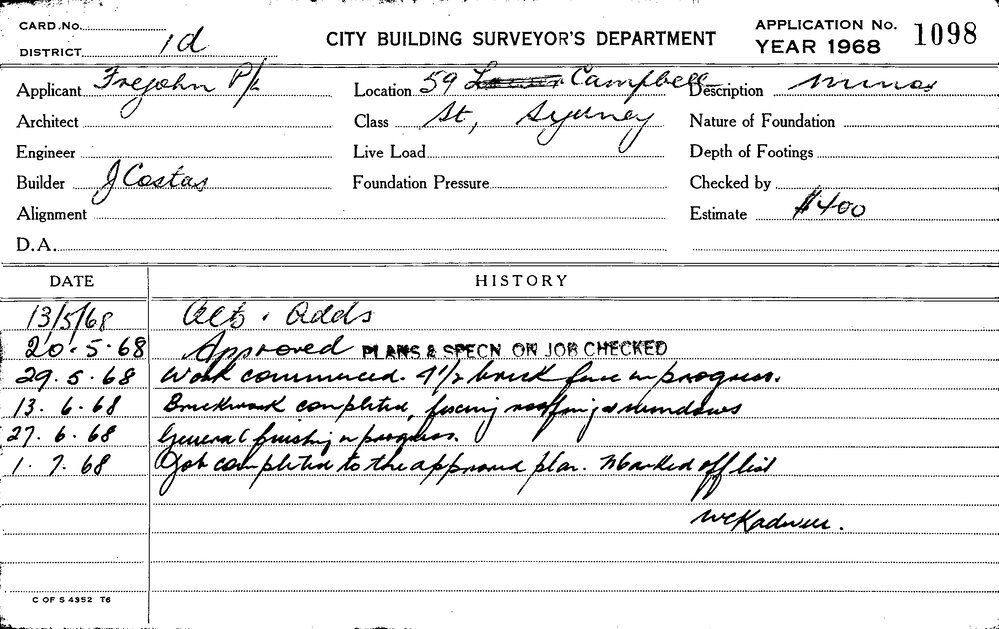 CARD.No.
DISTRICT 1d
CITY BUILDING SURVEYOR'S DEPARTMENT
APPLICATION No. 1098
YEAR 1968
Applicant Frejohn P/L
Location 59 Campbell
Description minor
Architect
Class St, Sydney
Nature of Foundation
Engineer
Live Load
Depth of Footings
Builder J Costas
Foundation Pressure
Checked by
Alignment
Estimate $400
D.A.
DATE HISTORY
13/5/68 Alts. Adds
20.5.68 Approved PLANS & SPECN ON JOB CHECKED
29.5.68 Work commenced. 4½ brick face in progress.
13.6.68 Brickwork completed, fixing roofing & windows
27.6.68 General finishing in progress.
1.7.68 Job completed to the approved plan. Marked off list
C OF S 4352 T6